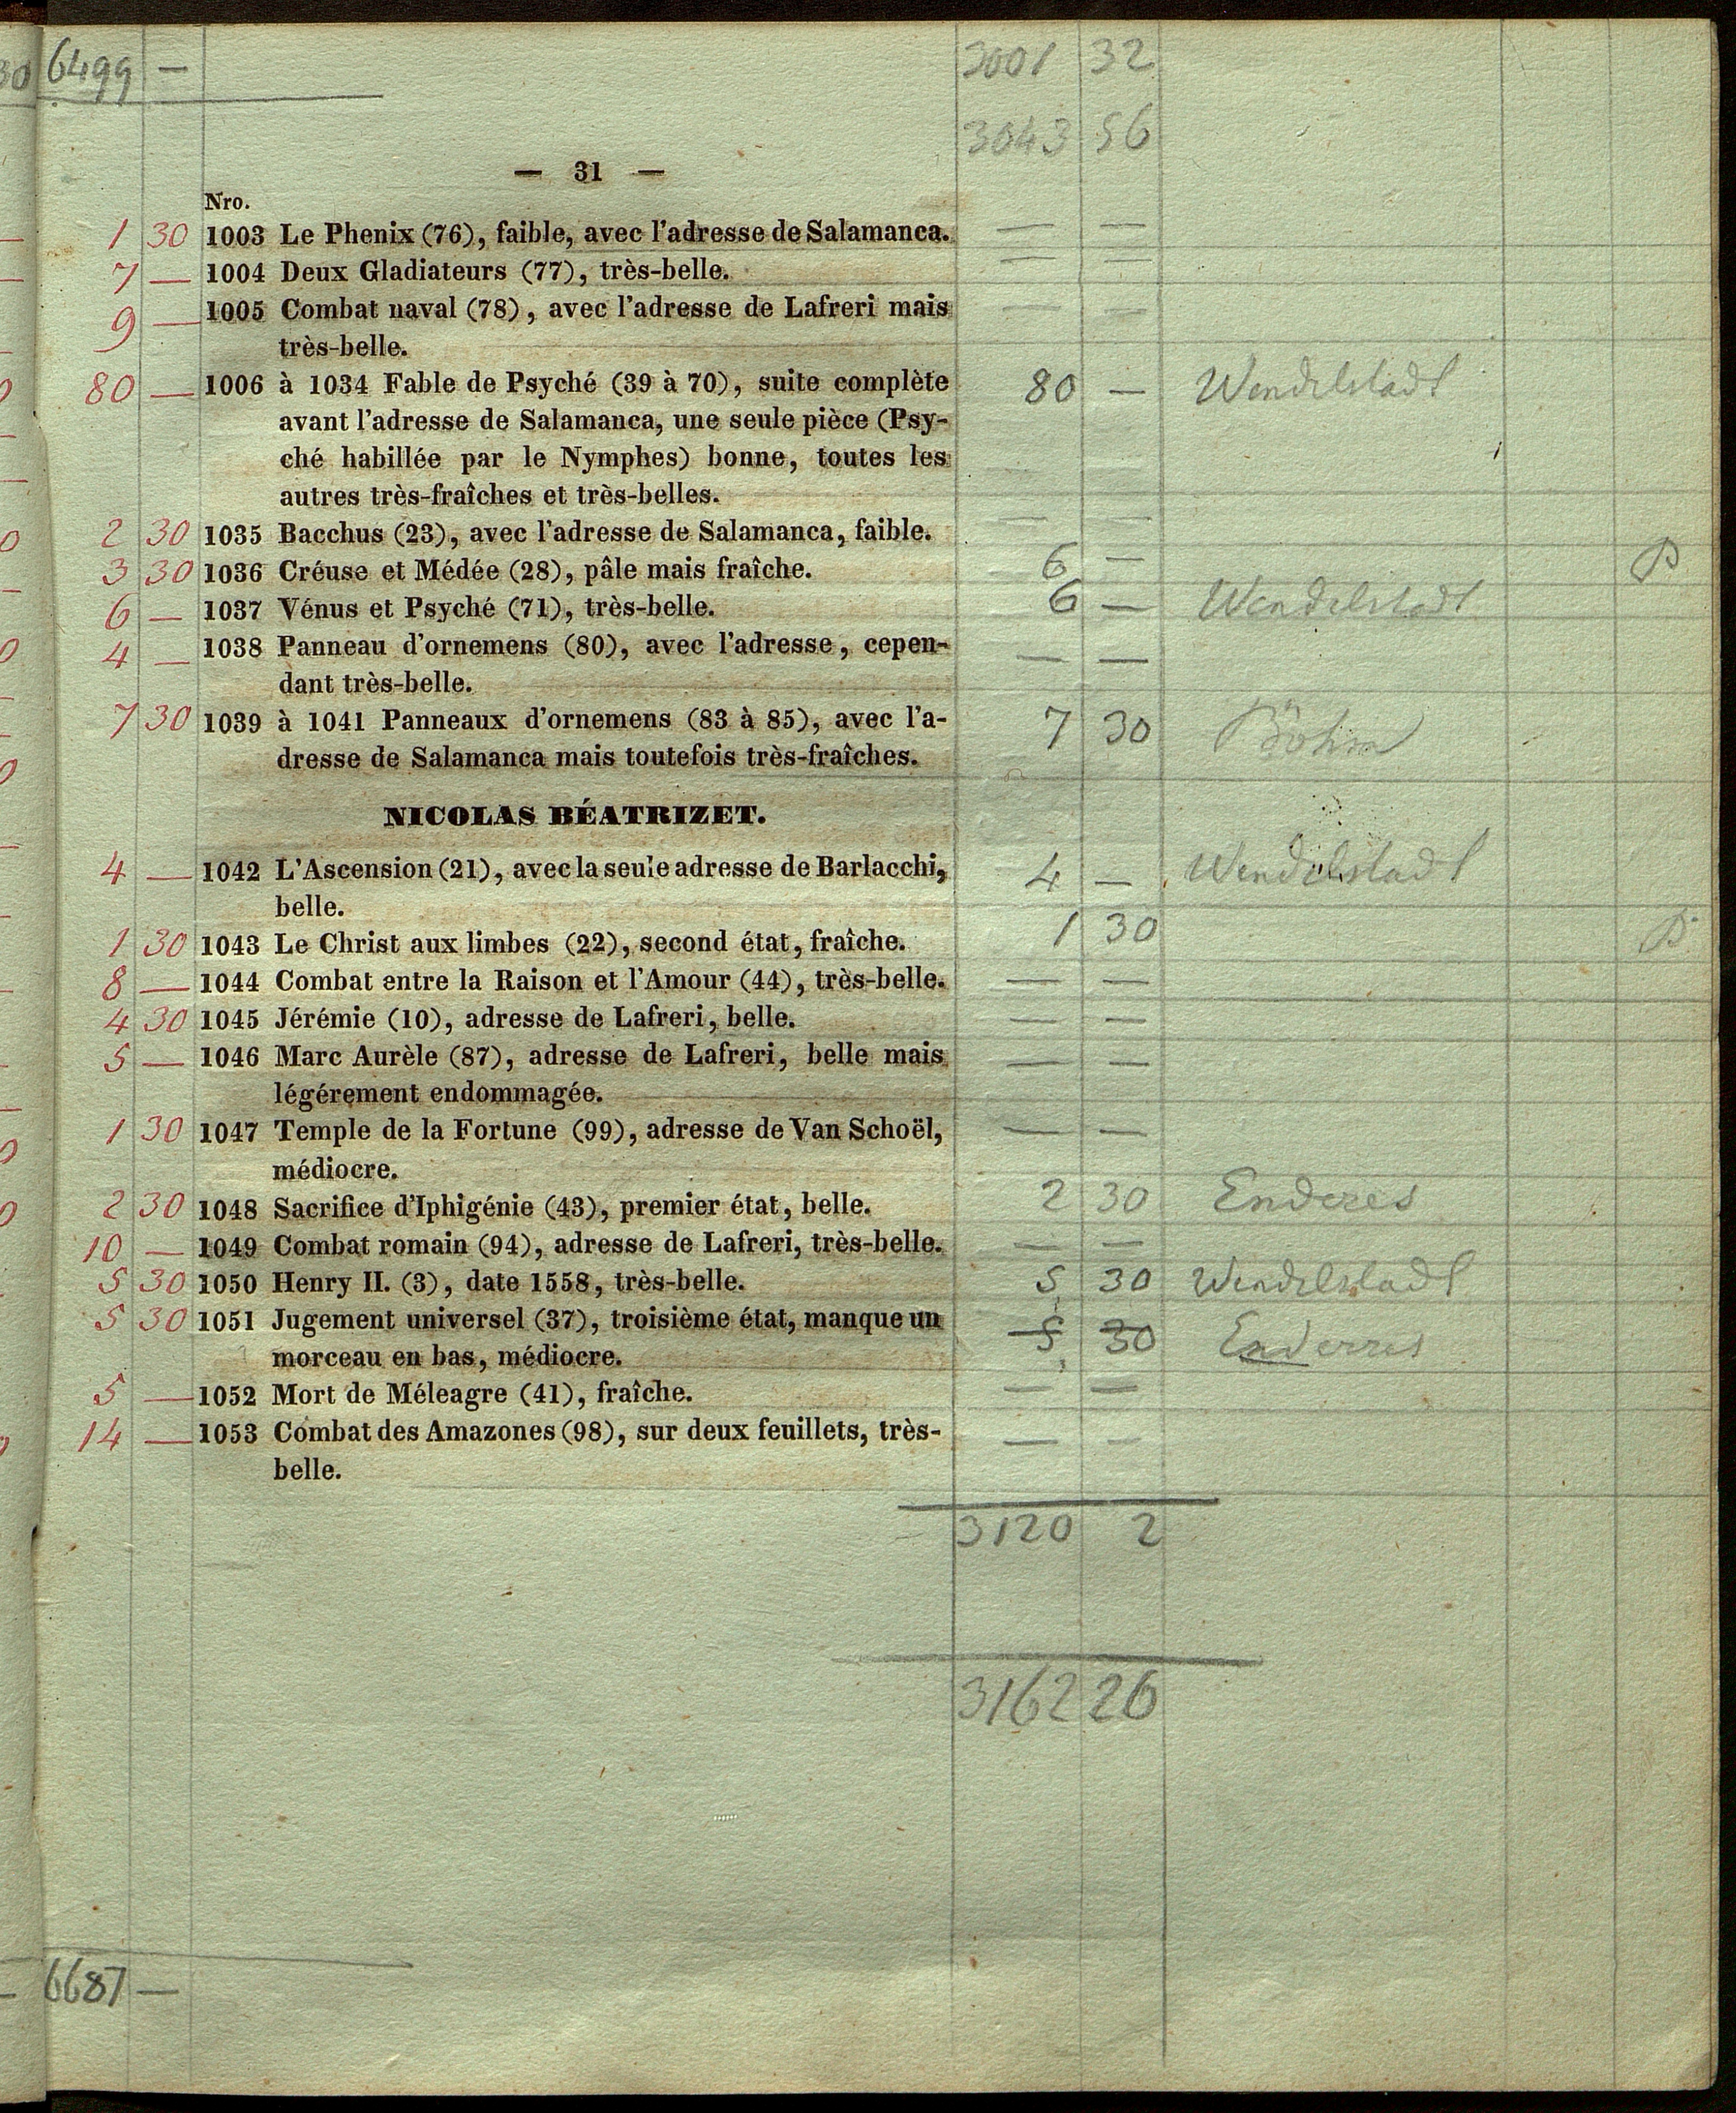 6499 — 3001 32
3043 56
— 31 —
Nro.
1 30 1003 Le Phenix (76), faible, avec l'adresse de Salamanca. — —
7 — 1004 Deux Gladiateurs (77), très-belle. — —
9 — 1005 Combat naval (78), avec l'adresse de Lafreri mais — —
très-belle.
80 — 1006 à 1034 Fable de Psyché (39 à 70), suite complète 80 — Wendelstadt
avant l'adresse de Salamanca, une seule pièce (Psy-
ché habillée par le Nymphes) bonne, toutes les
autres très-fraîches et très-belles.
2 30 1035 Bacchus (23), avec l'adresse de Salamanca, faible. — —
3 30 1036 Créuse et Médée (28), pâle mais fraîche. 6 — B
6 — 1037 Vénus et Psyché (71), très-belle. 6 — Wendelstadt
4 — 1038 Panneau d'ornemens (80), avec l'adresse, cepen- — —
dant très-belle.
7 30 1039 à 1041 Panneaux d'ornemens (83 à 85), avec l'a- 7 30 Böhm
dresse de Salamanca mais toutefois très-fraîches.
NICOLAS BÉATRIZET.
4 — 1042 L'Ascension (21), avec la seule adresse de Barlacchi, 4 — Wendelstadt
belle.
1 30 1043 Le Christ aux limbes (22), second état, fraîche. 1 30 B
8 — 1044 Combat entre la Raison et l'Amour (44), très-belle. — —
4 30 1045 Jérémie (10), adresse de Lafreri, belle. — —
5 — 1046 Marc Aurèle (87), adresse de Lafreri, belle mais — —
légérement endommagée.
1 30 1047 Temple de la Fortune (99), adresse de Van Schoël, — —
médiocre.
2 30 1048 Sacrifice d'Iphigénie (43), premier état, belle. 2 30 Enderes
10 — 1049 Combat romain (94), adresse de Lafreri, très-belle. — —
5 30 1050 Henry II. (3), date 1558, très-belle. 5 30 Wendelstadt
5 30 1051 Jugement universel (37), troisième état, manque un 5 30 Enderres
morceau en bas, médiocre.
5 — 1052 Mort de Méleagre (41), fraîche. — —
14 — 1053 Combat des Amazones (98), sur deux feuillets, très- — —
belle.
3120 2
3162 26
6687 —